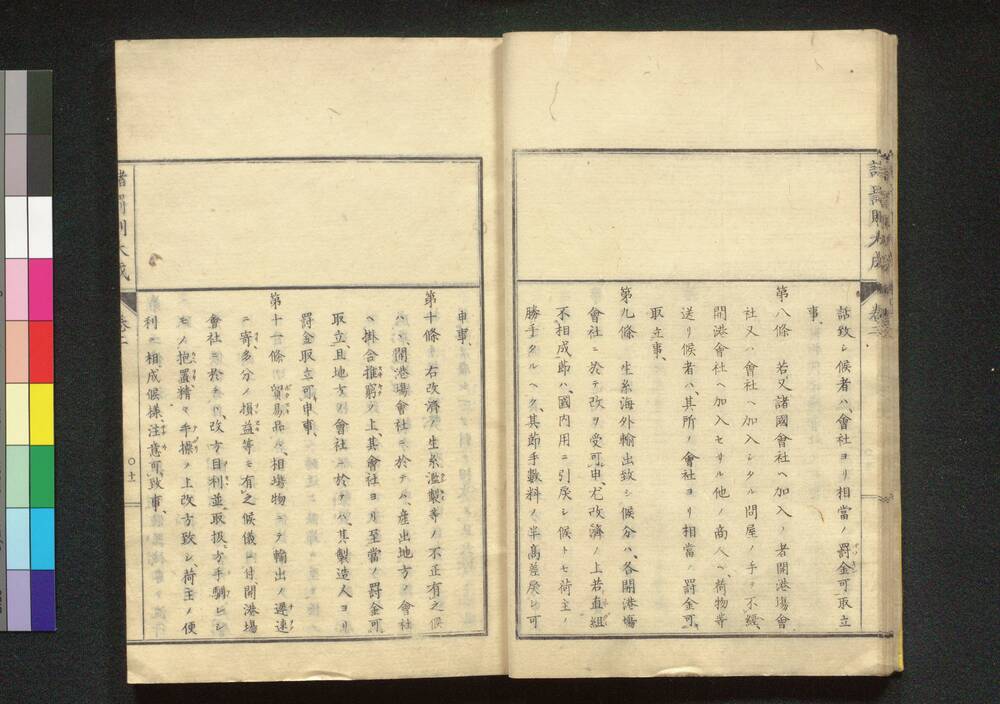 諸罰則大成
卷二
話致シ候者ハ、會社ヨリ相當ノ罰金可取立
事、
第八條　若又諸國會社ヘ加入ノ者開港塲會
社又ハ會社ヘ加入シタル問屋ノ手ヲ不經、
開港會社ヘ加入セサル他ノ商人ヘ、荷物等
送リ候者ハ、其所ノ會社ヨリ相當ノ罰金可
取立事、
第九條　生糸海外輸出致シ候分ハ、各開港塲
會社ニ於テ改ヲ受可申、尤改濟ノ上若直組
不相成節ハ、國内用ニ引戻シ候トモ荷主ノ
勝手タルヘク、其節手數料ノ半高差戻シ可
申事、
第十條　右改濟ノ生糸濫製等ノ不正有之候
ハヽ、開港塲會社ニ於テハ、産出地方ノ會社
ヘ掛合推窮ノ上、其會社ヨリ至當ノ罰金可
取立、且地方ノ會社ニ於テハ、其製造人ヨリ
罰金取立可申事、
第十一條　貿易品ハ、相塲物ニテ輸出ノ遲速
ニ寄多分ノ損益等モ有之候儀ニ付、開港塲
會社ニ於テハ、改方目利並取扱方手馴レシ
モノ抱置精々手操ノ上改方致シ、荷主ノ便
利ニ相成候樣、注意可致事、
諸罰則大成
卷二
〇十一